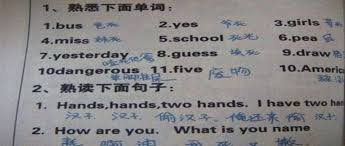 1、熟悉下面单词:
1.bus 爸死 2.yes 爷死 3.girls 哥
4.miss 妹死 5.school 死光 6.pea
7.yesterday 8.guess 该死 9.draw
10dangerous 11.five 废物 10.Americ
2、熟读下面句子:
1. Hands,hands,two hands. I have two han
汉子 汉子 偷汉子 俺还来偷 汉子
2. How are you. What is you name